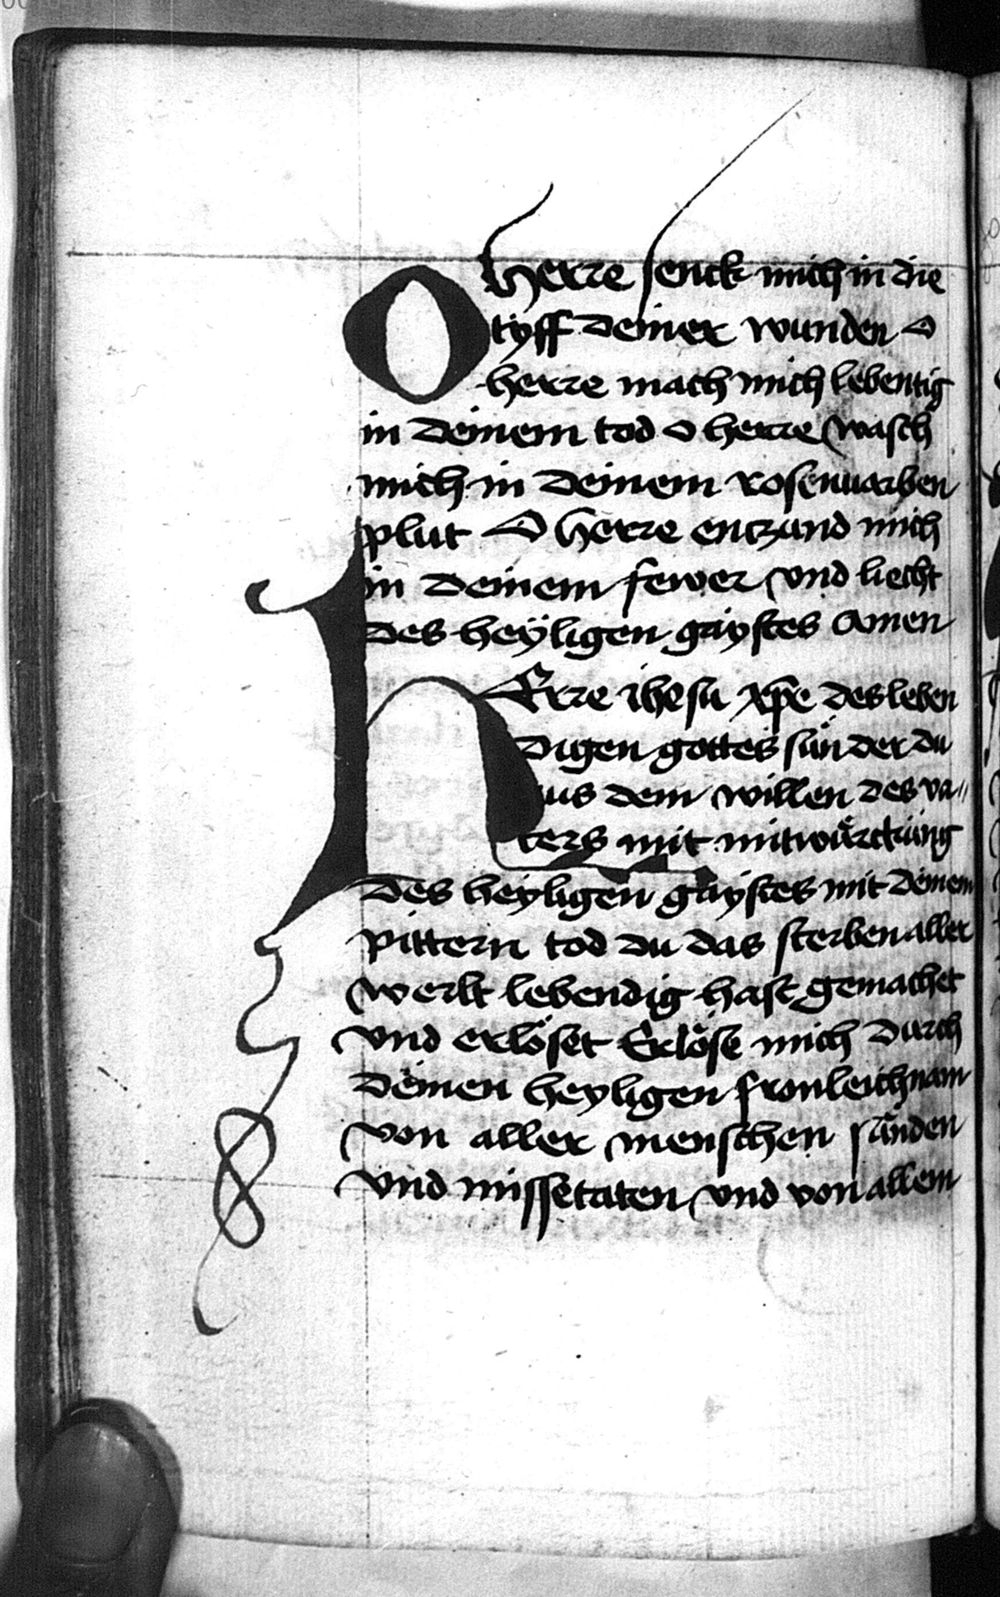 O Herre senck mich in die
tÿff deiner wunden O
herre mach mich lebentig
in deinem tod o herre wasch
mich in deinem rosenuarben
plut O herre entzund mich
in deinem fewer vnd liecht
des heÿligen gaystes Amen
HErre ihesu xp̄e des leben
digen gottes sun der du
aus dem willen des va〃
ters mit mitwürckung
des heyligen gaystes mit deinem
pittern tod du das sterben aller
werlt lebendig hast gemachet
vnd erlöset Erlöse mich durch
deinen heyligen fronleichnam
von aller menschen sünden
vnd missetaten vnd von allem